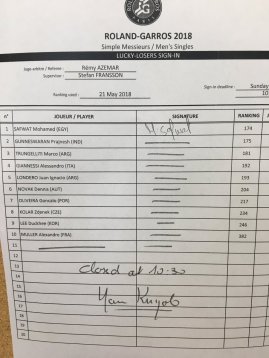 ROLAND-GARROS 2018
Simple Messieurs / Men's Singles
LUCKY-LOSERS SIGN-IN
Juge-arbitre / Referee : Rémy AZEMAR
Supervisor : Stefan FRANSSON
Sign-in deadline : Sunday
10
Ranking used : 21 May 2018
n° JOUEUR / PLAYER SIGNATURE RANKING
1 SAFWAT Mohamed (EGY) M Safwat 174
2 GUNNESWARAN Prajnesh (IND) 175
3 TRUNGELLITI Marco (ARG) 181
4 GIANNESSI Alessandro (ITA) 192
5 LONDERO Juan Ignacio (ARG) 193
6 NOVAK Dennis (AUT) 204
7 OLIVEIRA Goncalo (POR) 217
8 KOLAR Zdenek (CZE) 234
9 LEE Duckhee (KOR) 246
10 MULLER Alexandre (FRA) 382
11
12
13
14
15
16
17
18
19
20
Closed at 10:30